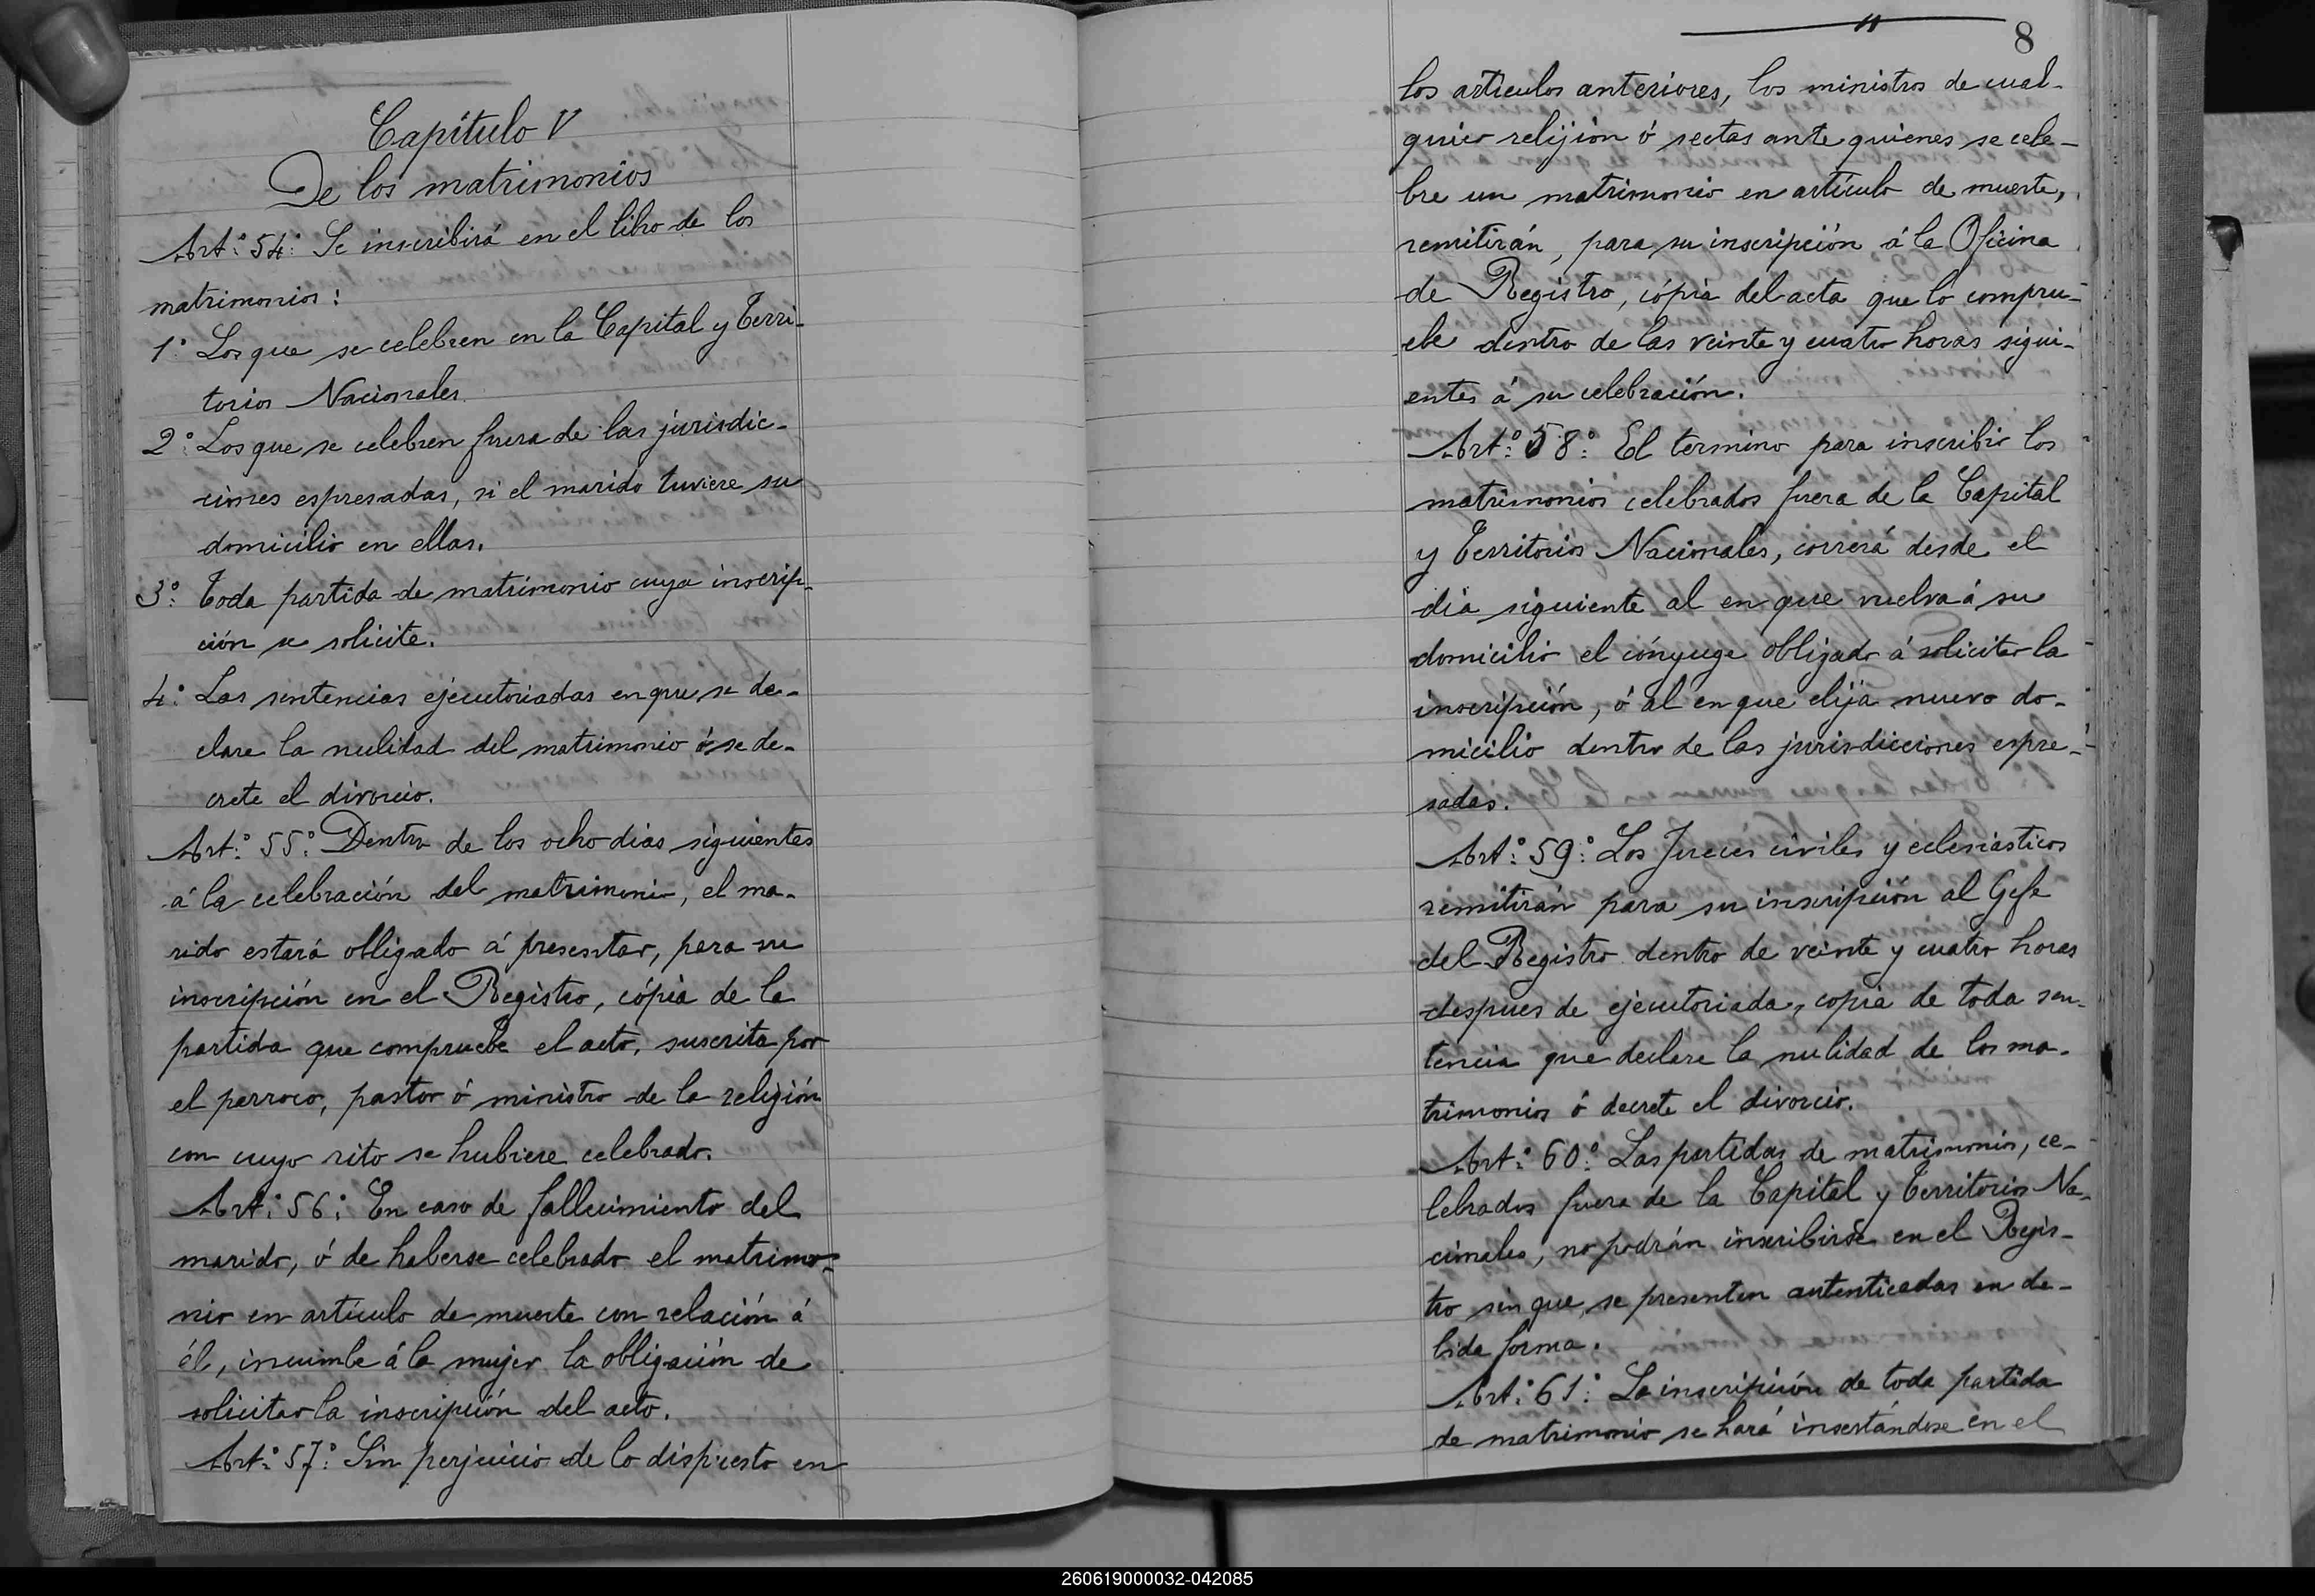 Capítulo V
De los matrimonios
Art.º 54.º Se inscribirá en el libro de los
matrimonios:
1.º Los que se celebren en la Capital y Terri-
torios Nacionales.
2.º Los que se celebren fuera de las jurisdic-
ciones espresadas, si el marido tuviere su
domicilio en ellas.
3.º Toda partida de matrimonio cuya inscrip-
ción se solicite.
4.º Las sentencias ejecutoriadas en que se de-
clare la nulidad del matrimonio, ó se de-
crete el divorcio.
Art.º 55.º Dentro de los ocho dias siguientes
á la celebración del matrimonio, el ma-
rido estará obligado á presentar, para su
inscripción en el Registro, cópia de la
partida que compruebe el acto, suscrita por
el parroco, pastor ó ministro de la religión
con cuyo rito se hubiere celebrado.
Art.º 56.º En caso de fallecimiento del
marido, ó de haberse celebrado el matrimo-
nio en artículo de muerte con relación á
él, incumbe á la mujer la obligación de
solicitar la inscripción del acto.
Art.º 57.º Sin perjuicio de lo dispuesto en
8
los artículos anteriores, los ministros de cual-
quier relijión ó sectas ante quienes se cele-
bre un matrimonio en artículo de muerte,
remitirán, para su inscripción á la Oficina
de Registro, cópia del acta que lo comprue-
ebe dentro de las veinte y cuatro horas sigui-
entes á su celebración.
Art.º 58.º El termino para inscribir los
matrimonios celebrados fuera de la Capital
y Territorios Nacionales, correrá desde el
dia siguiente al en que vuelva á su
domicilio el cónyuge obligado á solicitar la
inscripción, ó al en que elija nuevo do-
micilio dentro de las jurisdicciones espre-
sadas.
Art.º 59.º Los Jueces civiles y eclesiásticos
remitirán para su inscripción al Gefe
del Registro dentro de veinte y cuatro horas
despues de ejecutoriada, copia de toda sen-
tencia que declare la nulidad de los ma-
trimonios ó decrete el divorcio.
Art.º 60.º Las partidas de matrimonios, ce-
lebrados fuera de la Capital y Territorios Na-
cionales, no podrán inscribirse en el Regis-
tro sin que se presenten autenticadas en de-
bida forma.
Art.º 61.º La inscripción de toda partida
de matrimonio se hará insertándose en el
260619000032-042085